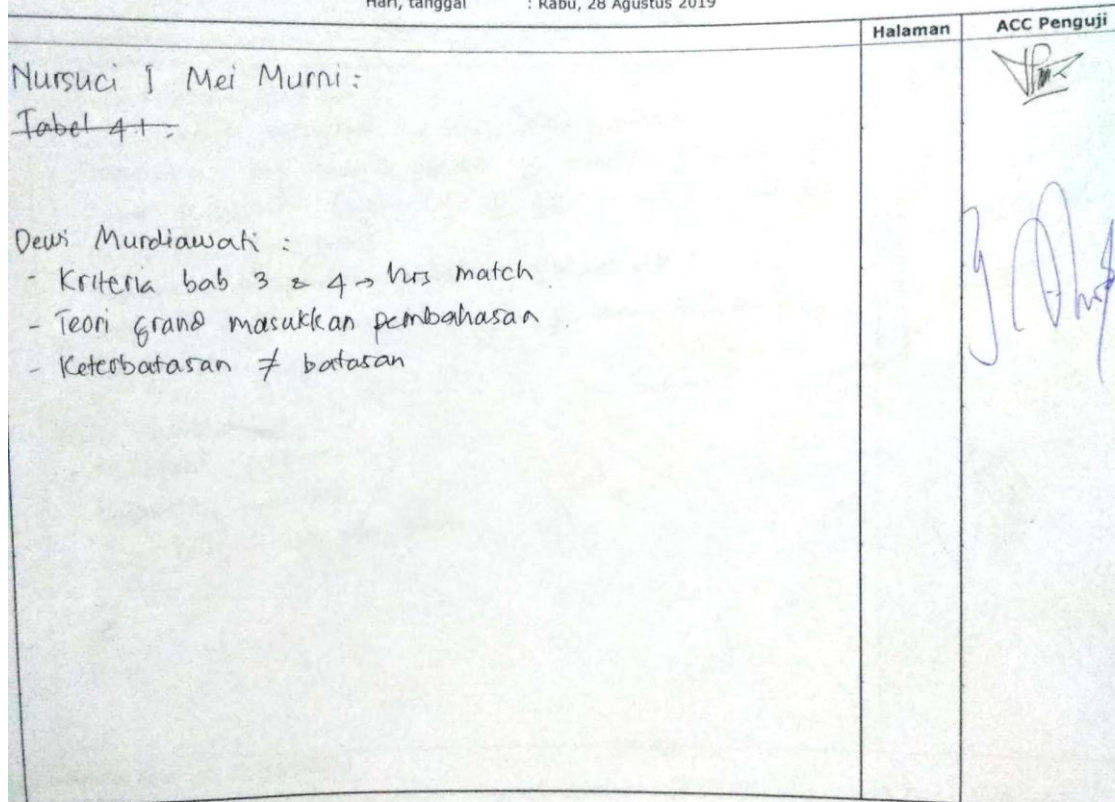 Hari, tanggal : Rabu, 28 Agustus 2019
Halaman ACC Penguji
Nursuci I Mei Murni :
Tabel 4.1 :
Dewi Murdiawati :
- Kriteria bab 3 & 4 → hrs match.
- Teori grand masukkan pembahasan.
- Keterbatasan ≠ batasan